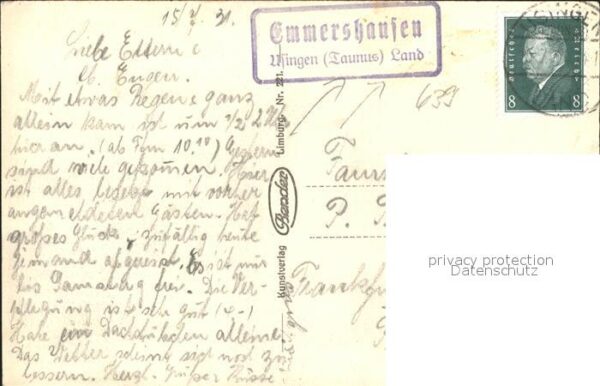 15/7 31.
Liebe Eltern &
lb. Eugen.
Mit etwas Regen & ganz
allein kam ich um 1/2 2 Uhr
hier an. (ab Ffm 10.10) Gestern
sind viele gekommen. Hier
ist alles besetzt mit vorher
angemeldeten Gästen. Hat
großes Glück, zufällig heute
jemand abgereist. Es ist nur
bis Samstag frei. Die Ver-
pflegung ist sehr gut
Habe ein Dachstübchen alleine.
Das Wetter scheint sich noch zu
bessern. Herzl. Grüße Küsse
Emmershausen
Usingen (Taunus) Land
639
Deutsches Reich
8 8
USINGEN
Kunstverlag Bender Limburg. Nr. 221.
Fam
P.
Frankfur
privacy protection
Datenschutz